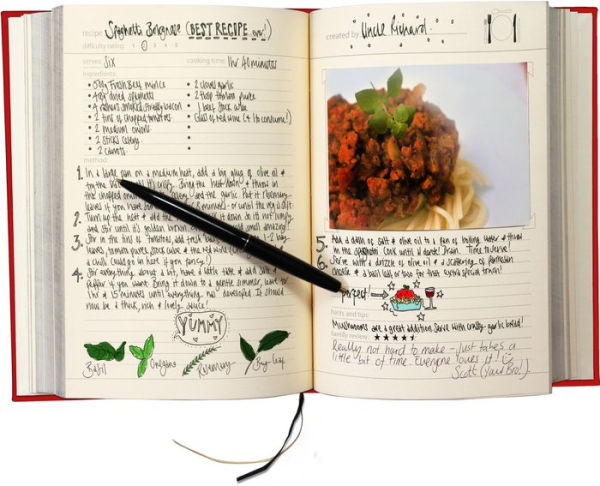 recipe Spaghetti Bolognese (BEST RECIPE ever!)
difficulty rating 1 2 3 4 5
serves Six cooking time 1hr 40 minutes
ingredients
• 500g Fresh Beef mince
• dried spaghetti
• 4 rashers smoked streaky bacon
• 2 tins of chopped tomatoes
• 2 medium onions
• 2 sticks celery
• 2 carrots
• 2 cloves garlic
• 2 tbsp tomato purée
• 1 beef stock cube
• Glass of red wine (+ 1 to consume!)
method
1. In a large pan on a medium heat, add a big glug of olive oil &
fry the bacon until it's crispy. Bring the heat down & throw in
the chopped onions celery and the garlic. Put it rosemary
leaves if you have some
2. Turn up the heat & add the
and stir until it's golden brown small amazing!
3. Stir in the tins of tomatoes, add fresh basil 1-2 bay
leaves, tomato puree, stock cube & the red wine
& chilli (could go in here if you fancy!)
4. Stir everything about a bit, have a little taste & add salt &
pepper if you want. Bring it down to a gentle simmer, leave for
1hr & 15 minutes until everything has developed. It should
now be a thick, rich & lovely sauce!
YUMMY
Basil Oregano Rosemary Bay Leaf
created by Uncle Richard
5. Add a dash of salt & olive oil to a pan of boiling water & throw
in the spaghetti. Cook until al dente! Drain. Time to serve!
6. Serve with a drizzle of olive oil & a scattering of parmesan
cheese & a basil leaf on top for that extra special touch!
perfect!
hints and tips
Mushrooms are a great addition. Serve with crusty garlic bread!
family review
Really not hard to make - just takes a
little bit of time. Everyone loves it!
Scott (Your Bro!)